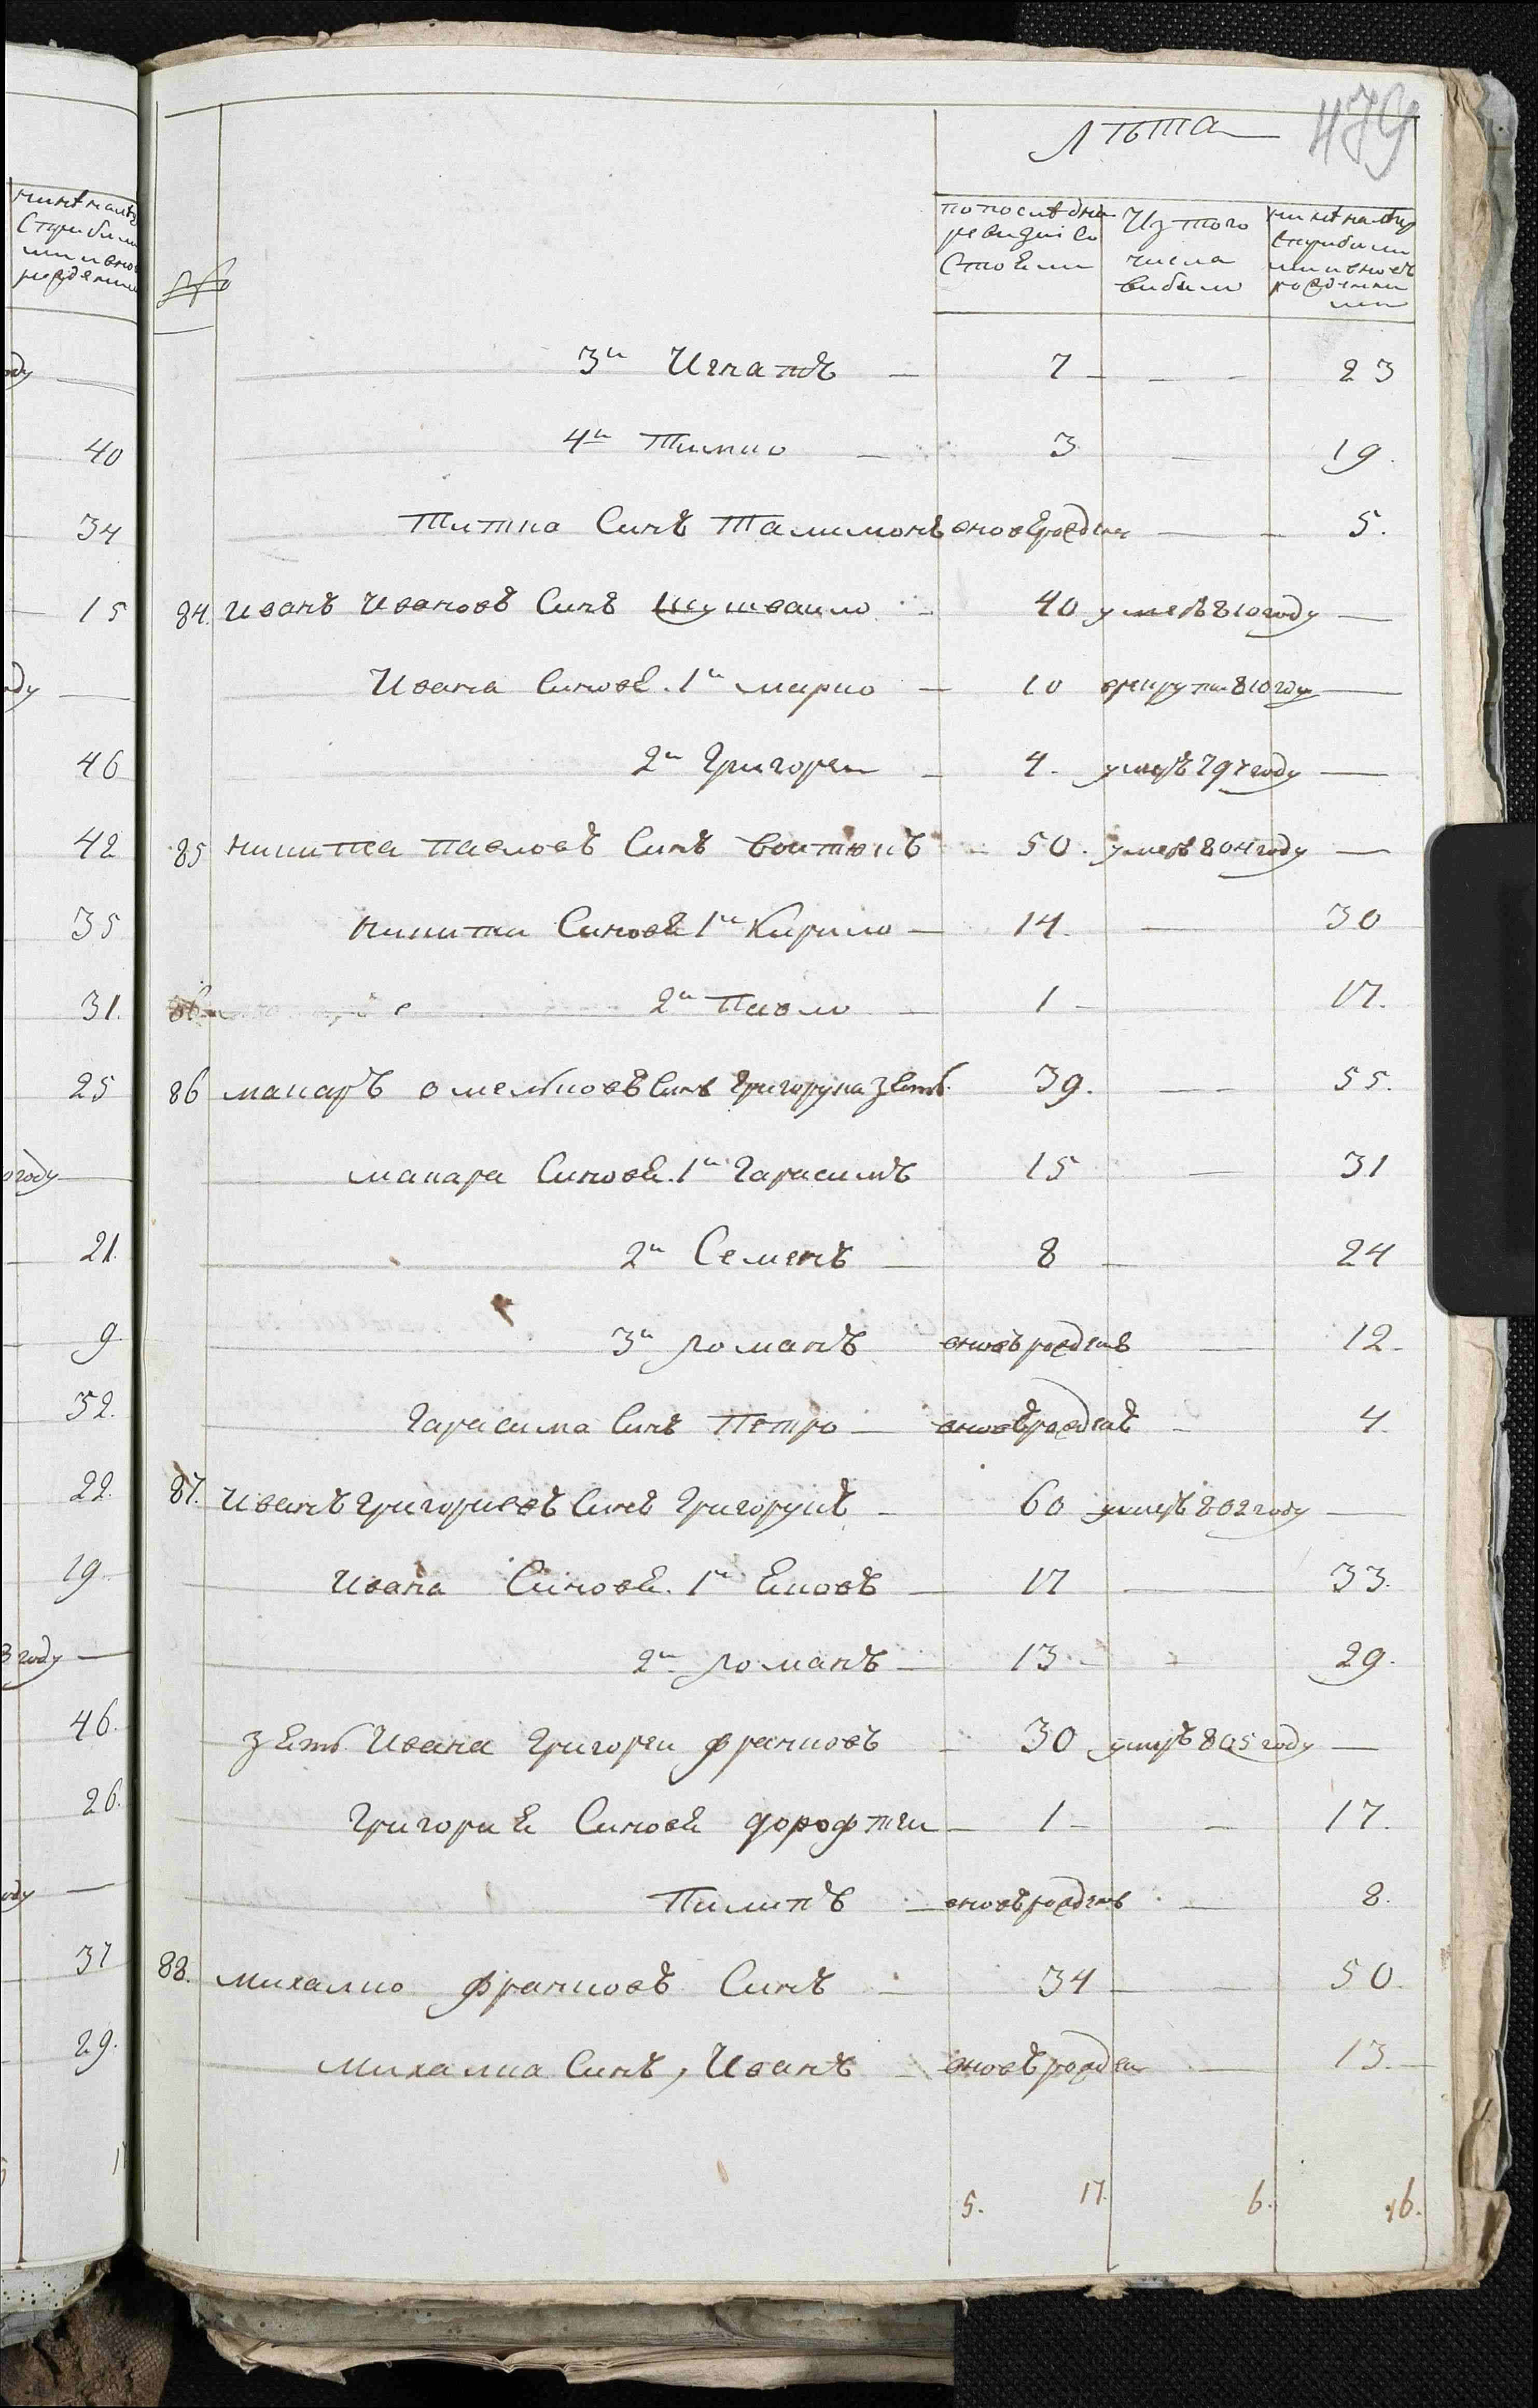 479
Лѣта
№
по последней ревизии состояли
Из того числа выбыло
ныне налицо с прибылыми и вновь рожденными
3й Игнатъ — 7 — — — 23
4й Тишко — 3 — 19.
Титка Синъ Талимонъ вновь рожден — — 5.
84. Иванъ Ивановъ Синъ — 40 умеръ 810 году —
Ивана Синовѣ. 1й марко — 10 в рекруты 810 году —
2й Григореи — 4. умеръ 797 году —
85 никитка павловъ Синъ воитюкъ — 50. умеръ 804 году —
Никитки Синовѣ 1й Кирило — 14. — 30
2й Павло 1 — 17.
86 макаръ омелковъ Синъ Григорука зять. 39. — 55.
макара Синовѣ. 1й Гарасимъ 15 — 31
2й Семенъ — 8 — 24
3й романъ вновь рожденъ — 12.
Гарасима Синъ Петро — вновь рожденъ — 4.
87. Иванъ Григориевъ Синъ Григорукъ — 60 умеръ 802 году —
Ивана Синовѣ. 1й Яковъ — 17 — 33.
2й романъ — 13 — 29.
зять Ивана Григореи францовъ — 30 умеръ 805 году —
Григорие Синовѣ дорофтеи — 1 — — 17.
Пилипъ — вновь рожденъ — 8.
88. михалко францовъ Синъ — 34 — — 50.
михалка Синъ, Иванъ — вновь рожден — 13.
5. 17. 6. 16.
40
34
15
46
42
35
31.
25
21.
9
32.
22.
19
3 году —
46.
26.
37
29.